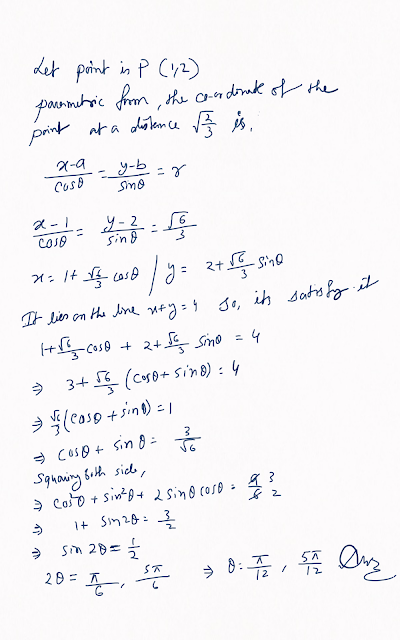 Let point is P (1,2)
parametric form, the co-ordinate of the
point at a distance √(2/3) is,
(x-a)/cosθ = (y-b)/sinθ = r
(x-1)/cosθ = (y-2)/sinθ = √6/3
x = 1+ √6/3 cosθ / y = 2+ √6/3 sinθ
It lies on the line x+y = 4 so, its satisfy it
1+ √6/3 cosθ + 2+ √6/3 sinθ = 4
⇒ 3+ √6/3 (cosθ + sinθ) = 4
⇒ √6/3 (cosθ + sinθ) = 1
⇒ cosθ + sinθ = 3/√6
Squaring both side,
⇒ cos²θ + sin²θ + 2 sinθ cosθ = 9/6 3/2
⇒ 1+ sin2θ = 3/2
⇒ sin 2θ = 1/2
2θ = π/6, 5π/6 ⇒ θ = π/12, 5π/12 Ans